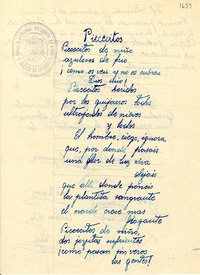 1639
Piececitos
Piececitos de niño
azulosos de frío
¡como os ven y no os cubren
Dios mío!
Piececitos heridos
por los guijarros todos
ultrajados de nieves
y lodos
El hombre, ciego, ignora
que, por donde pasáis
una flor de luz viva
dejáis
que allí donde ponéis
la plantita sangrante
el nardo crece más
fragante
Piececitos de niño,
dos joyitas sufrientes
¡como pasan sin veros
las gentes!